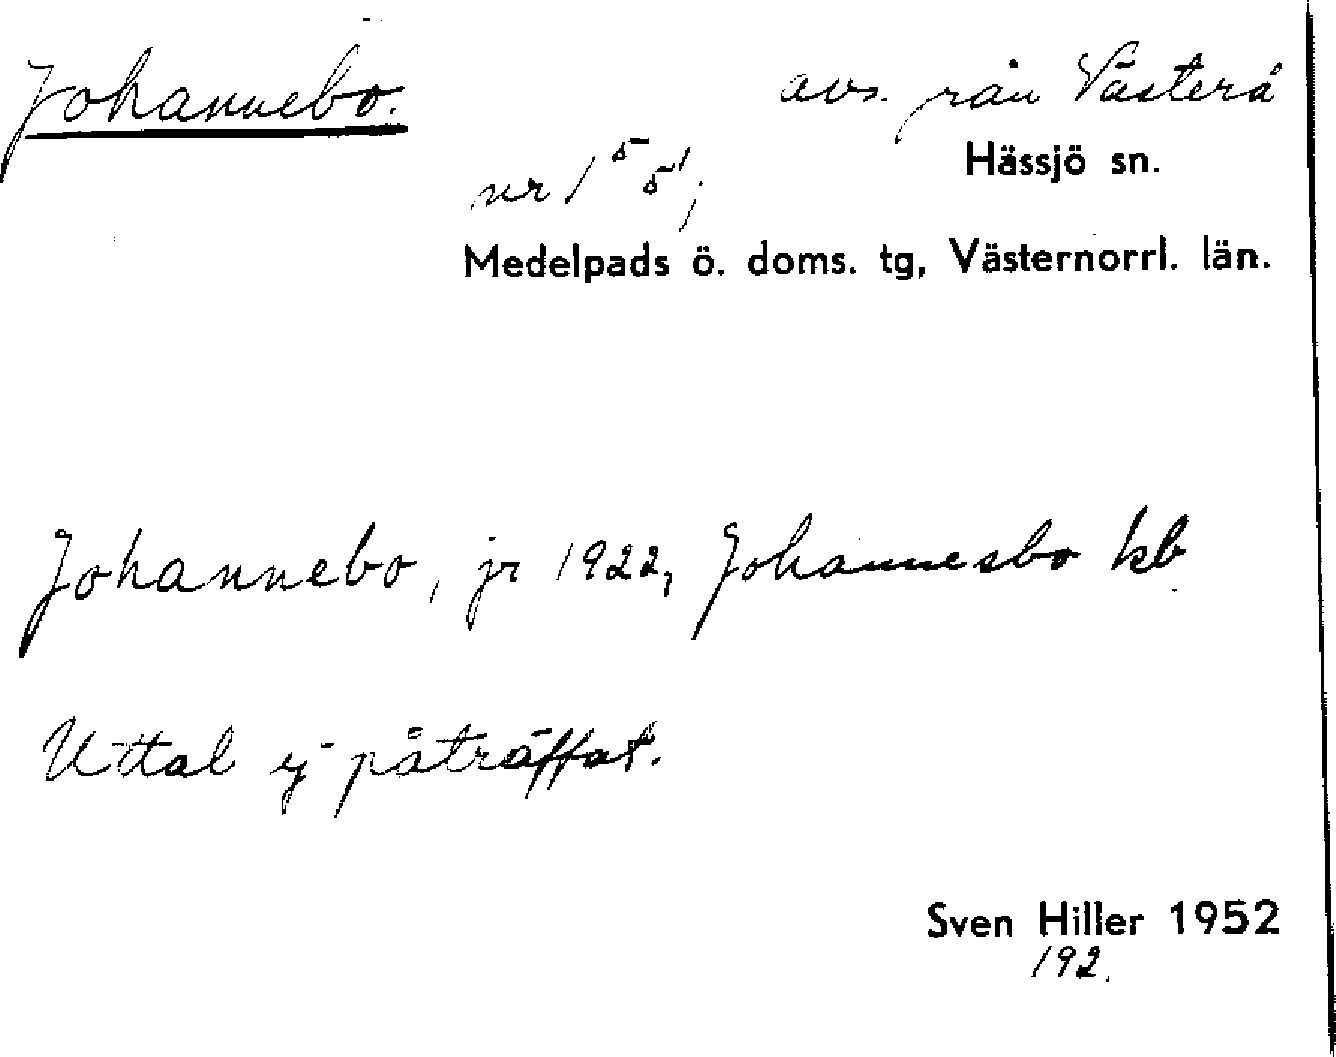 Johannebo.
avs. från Västerå
Hässjö sn.
nr 1⁵5¹;
Medelpads ö. doms. tg, Västernorrl. län.
Johannebo, jr 1922, Johannesbo kb
Uttal ej påträffat.
Sven Hiller 1952
192.